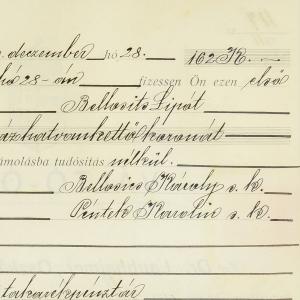 deczember hó 28. 162 K.
hó 28-án fizessen Ön ezen első
Bellosits Lipót
ázhatvankettő koronát
ámolásba tudósítás nélkül.
Bellosics Károly s. k.
Péntek Karolin s. k.
takarékpénztár